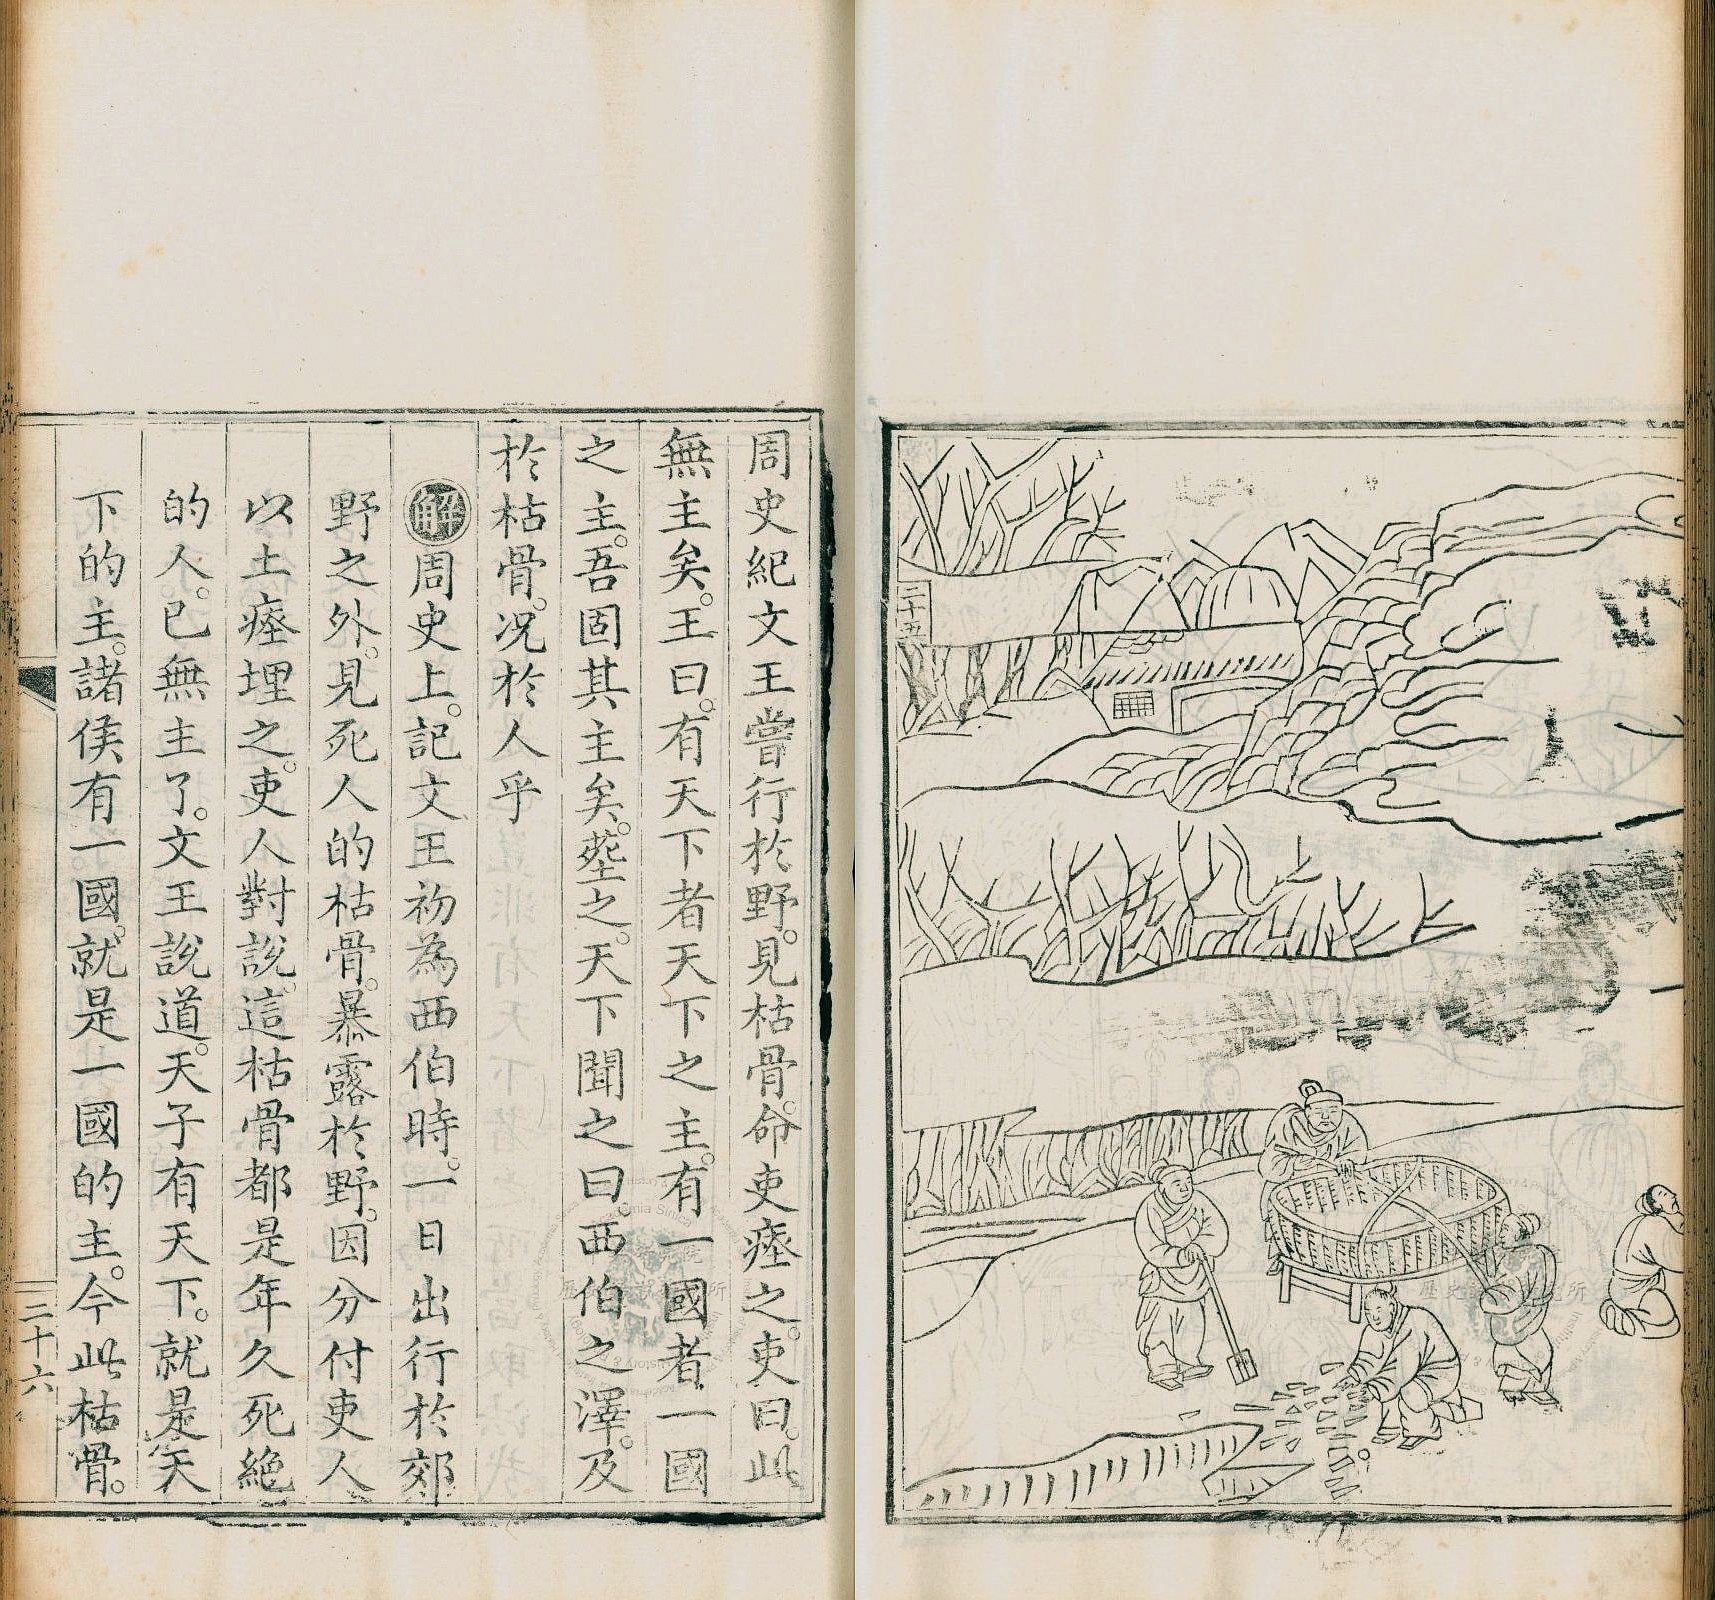 二十五
周史紀文王嘗行於野。見枯骨。命吏瘞之。吏曰。此
無主矣。王曰。有天下者天下之主。有一國者一國
之主。吾固其主矣。葬之。天下聞之曰西伯之澤。及
於枯骨。况於人乎
解周史上。記文王初為西伯時。一日出行於郊
野之外。見死人的枯骨。暴露於野。因分付吏人
以土瘞埋之。吏人對說。這枯骨都是年久死絕
的人。已無主了。文王說道。天子有天下。就是天
下的主。諸侯有一國。就是一國的主。今此枯骨。
二十六